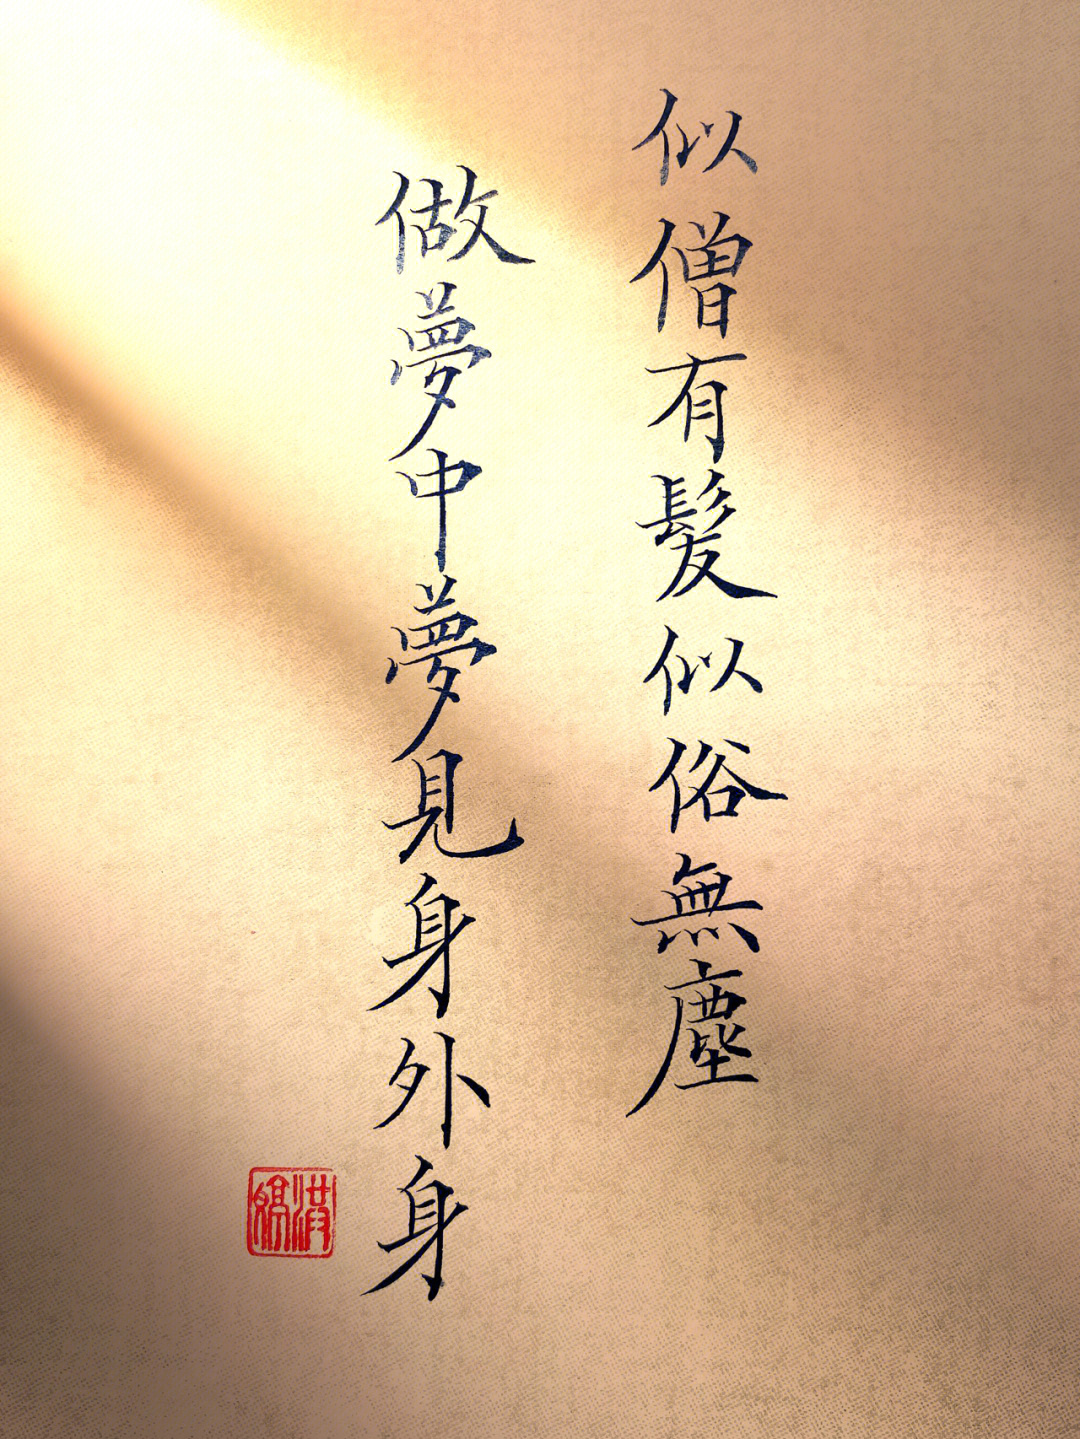 似僧有髮似俗無塵
做夢中夢見身外身